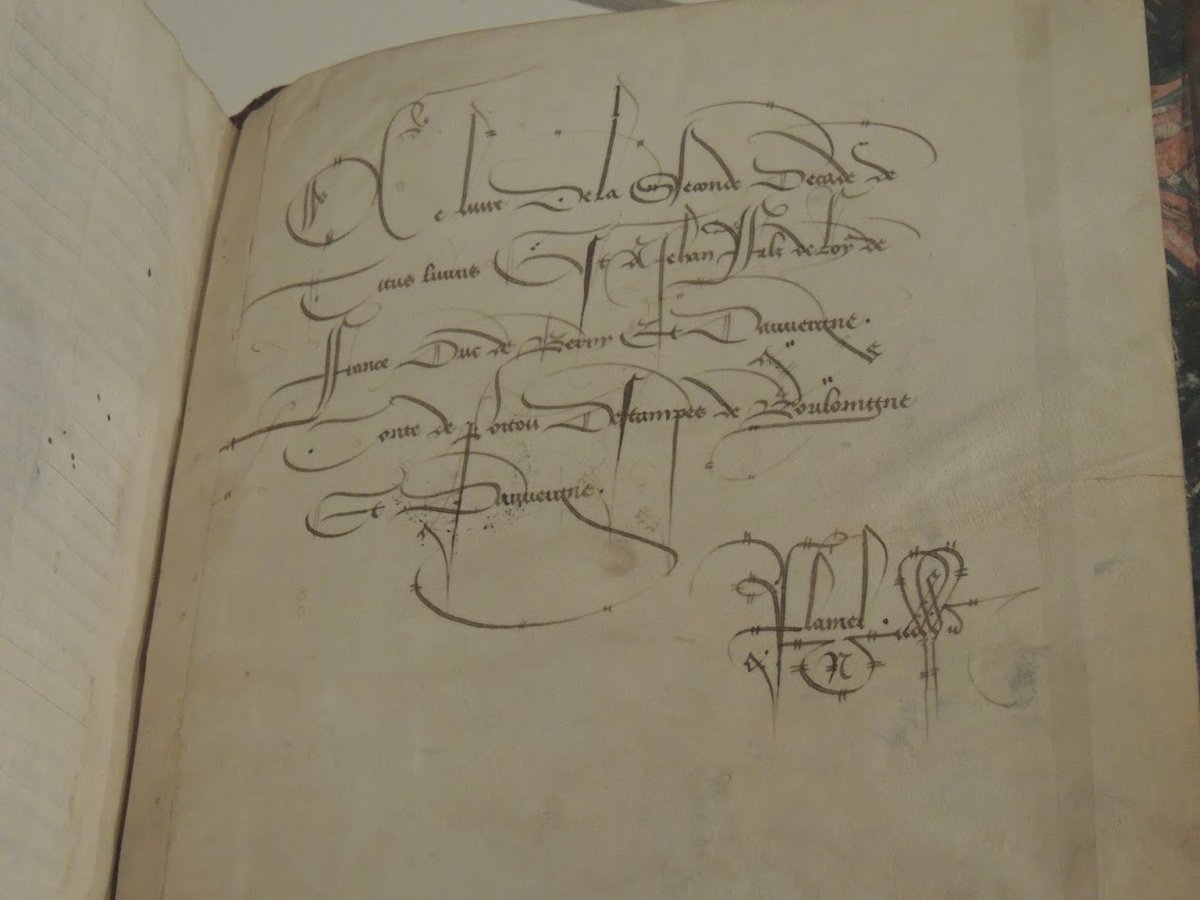 Ce livre De la Seconde Decade de
Titus livius Est A Jehan Filz de Roy de
France Duc de Berry Et Dauvergne.
Conte de Poitou Destampes de Bouloingne
Et Dauvergne.
Flamel.
N